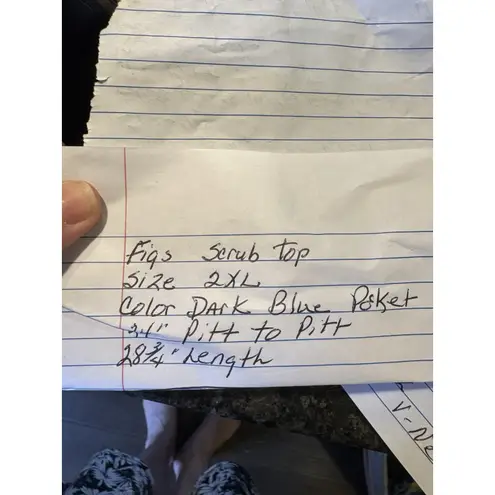 Figs Scrub Top
Size 2XL
Color Dark Blue Pocket
Pitt to Pitt
28 3/4" Length
V-Ne